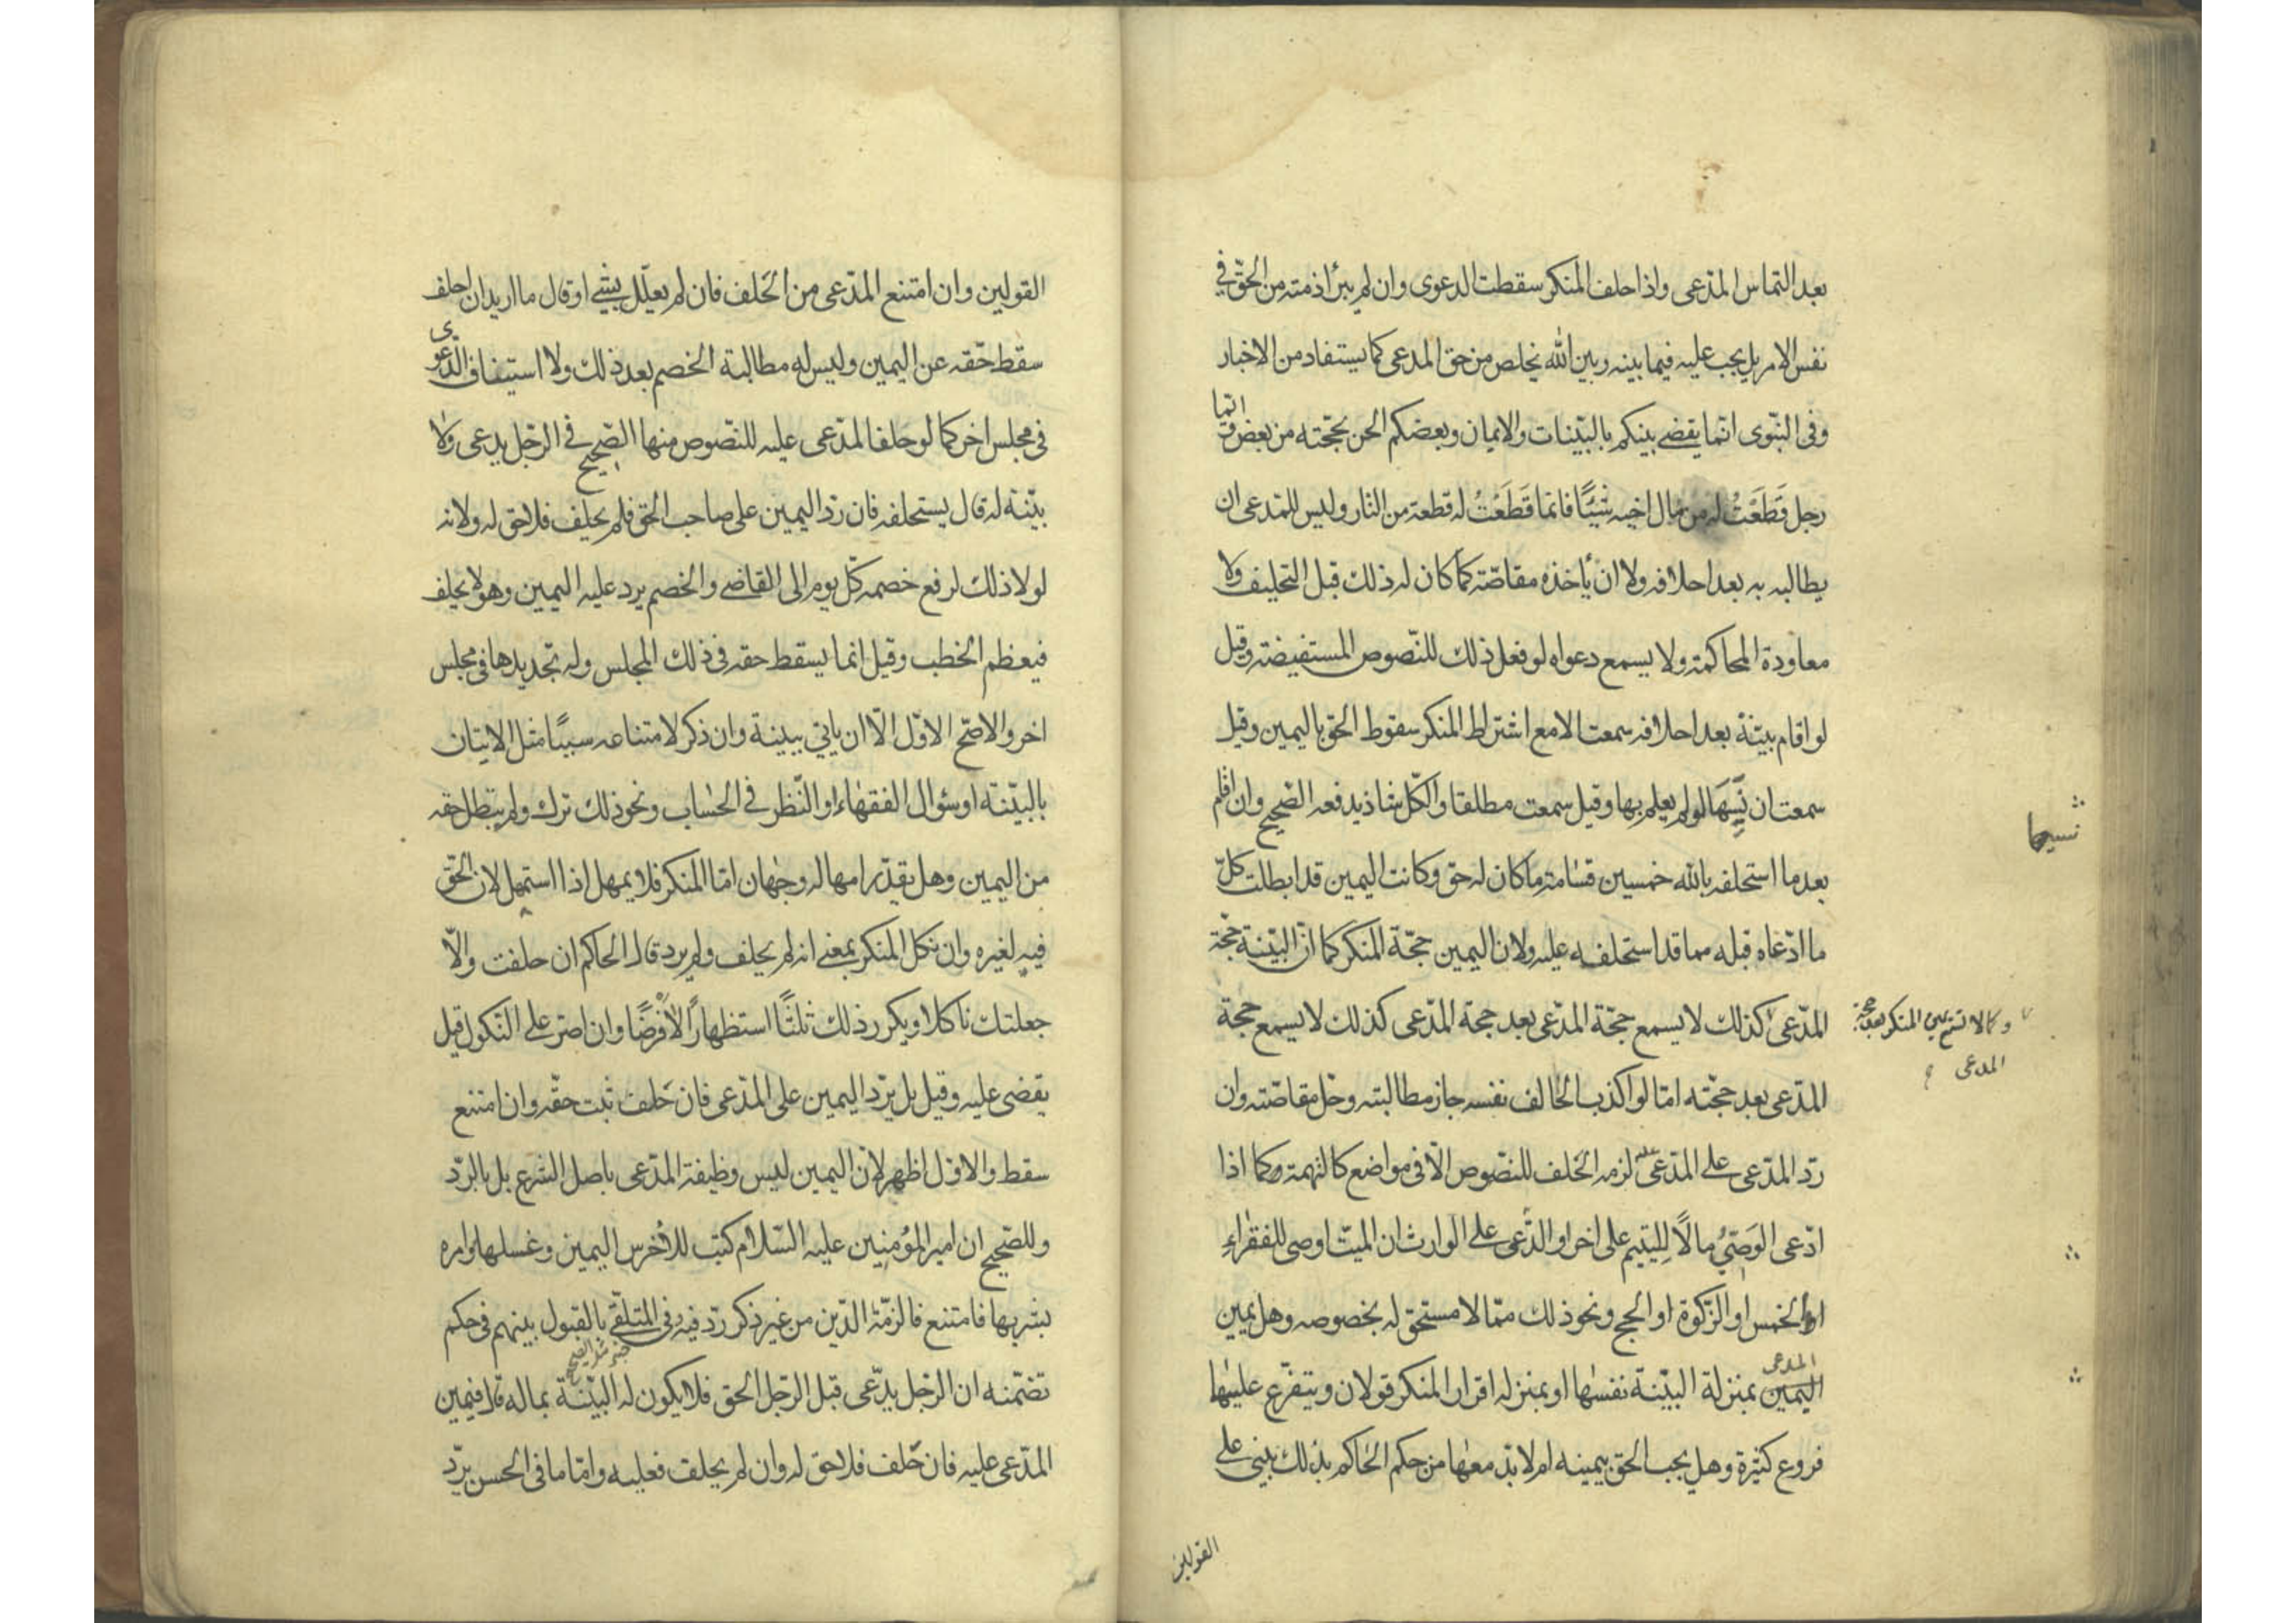 بعد التماس المدّعى واذا حلف المنكر سقطت الدعوى وان لم يبرأ ذمته من الحقّ فى
نفس الامر بل يجب عليه فيما بينه وبين الله تخلص من حق المدعى كما يستفاد من الاخبار
وفى النبّوى انّما يقضى بينكم بالبيّنات والايمان وبعضكم الحن بحجّته من بعض وايّما
رجل قَطَعَتُ له من مال اخيه شيئًا فانما قَطَعَتُ له قطعة من النار وليس للمدعى ان
يطالبه به بعد احلافه ولا ان يأخذه مقاصّة كما كان له ذلك قبل التحليف ولا
معاودة المحاكمة ولا يسمع دعواه لو فعل ذلك للنّصوص المستفيضة وقيل
لو اقام بيّنة بعد احلافه سمعت الا مع اشتراط المنكر سقوط الحق باليمين وقيل
سمعت ان نسيها او لم يعلم بها وقيل سمعت مطلقا والكلّ شاذ يدفعه الصّحيح وان اقام
نسيها
بعد ما استحلفه بالله خمسين قسامة ما كان له حق وكانت اليمين قد ابطلت كلّ
ما ادّعاه قبله مما قد استحلفه عليه ولان اليمين حجّة المنكر كما انّ البيّنة حجّة
المدّعى كذلك لا يسمع حجّة المدّعى بعد حجة المدّعى كذلك لا يسمع حجة
وكما لا تسمع يمين المنكر بعد حجة
المدعى
المدّعى بعد حجّته امّا لو اكذب الحالف نفسه جاز مطالبته وحلّ مقاصّته وان
ردّ المدّعى على المدّعى عليه لزمه الحلف للنّصوص الّا فى مواضع كالتهمة وكما اذا
ادّعى الوَصّىُ مالًا لِليتيم على اخر او ادّعى على الوارث ان الميّت اوصى للفقراءِ
او الخمس او الزّكوة او الحج ونحو ذلك ممّا لا مستحق له بخصوصه وهل يمين
المدعى
اليمين بمنزلة البيّنة نفسها او بمنزله اقرار المنكر قولان ويتفرّع عليها
فروع كثيرة وهل يجب الحق بيمينه ام لا بدّ معها من حكم الحاكم بذلك يبنى على
القولين
القولين وان امتنع المدّعى من الحَلف فان لم يعلّل بشئ او قال ما اريد ان احلف
سقط حقّه عن اليمين وليس له مطالبة الخصم بعد ذلك ولا استيناف الدّعوى
فى مجلس اخر كما لو حلف المدّعى عليه للنّصوص منها الصّحيح فى الرّجل يدعى ولا
بيّنة له قال يستحلفه فان ردّ اليمين على صاحب الحق فلم يحلف فلا حق له ولانه
لولا ذلك لرفع خصمه كلّ يوم الى القاضى والخصم يرد عليه اليمين وهو لا يحلف
فيعظم الخطب وقيل انما يسقط حقه فى ذلك المجلس وله تجديدها فى مجلس
اخر والاصّح الاوّل الّا ان ياتى ببينة وان ذكر لامتناعه سببًا مثل الاتيان
بالبيّنة او سئوال الفقهاء او النّظر فى الحساب ونحو ذلك ترك ولم يبطل حقه
من اليمين وهل يقدّر امهاله وجهان امّا المنكر فلا يمهل اذا استمهل لان الحقّ
فيه لغيره وان نكل المنكر بمعنى انه لم يحلف ولم يرد قال الحاكم ان حلفت والّا
جعلتك ناكلا ويكرر ذلك ثلثًا استظهارًا لا فرضًا وان اصر على النّكول قيل
يقضى عليه وقيل بل يردّ اليمين على المدّعى فان حَلف ثبت حقّه وان امتنع
سقط والاوّل اظهر لانّ اليمين ليس وظيفة المدّعى باصل الشرع بل بالردّ
وللصّحيح ان امير المؤمنين عليه السّلام كتب للاخرس اليمين وغسلها وامره
بشربها فامتنع فالزمّه الدّين من غير ذكر ردّ فيه وفى المتلقّى بالقبول بينهم فى حكم
تضمّنه ان الرّجل يدّعى قبل الرّجل الحق فلا يكون له البيّنة بماله قال فيمين
المدّعى عليه فان حَلف فلا حق له وان لم يحلف فعليه وامّا ما فى الحسن يردّ